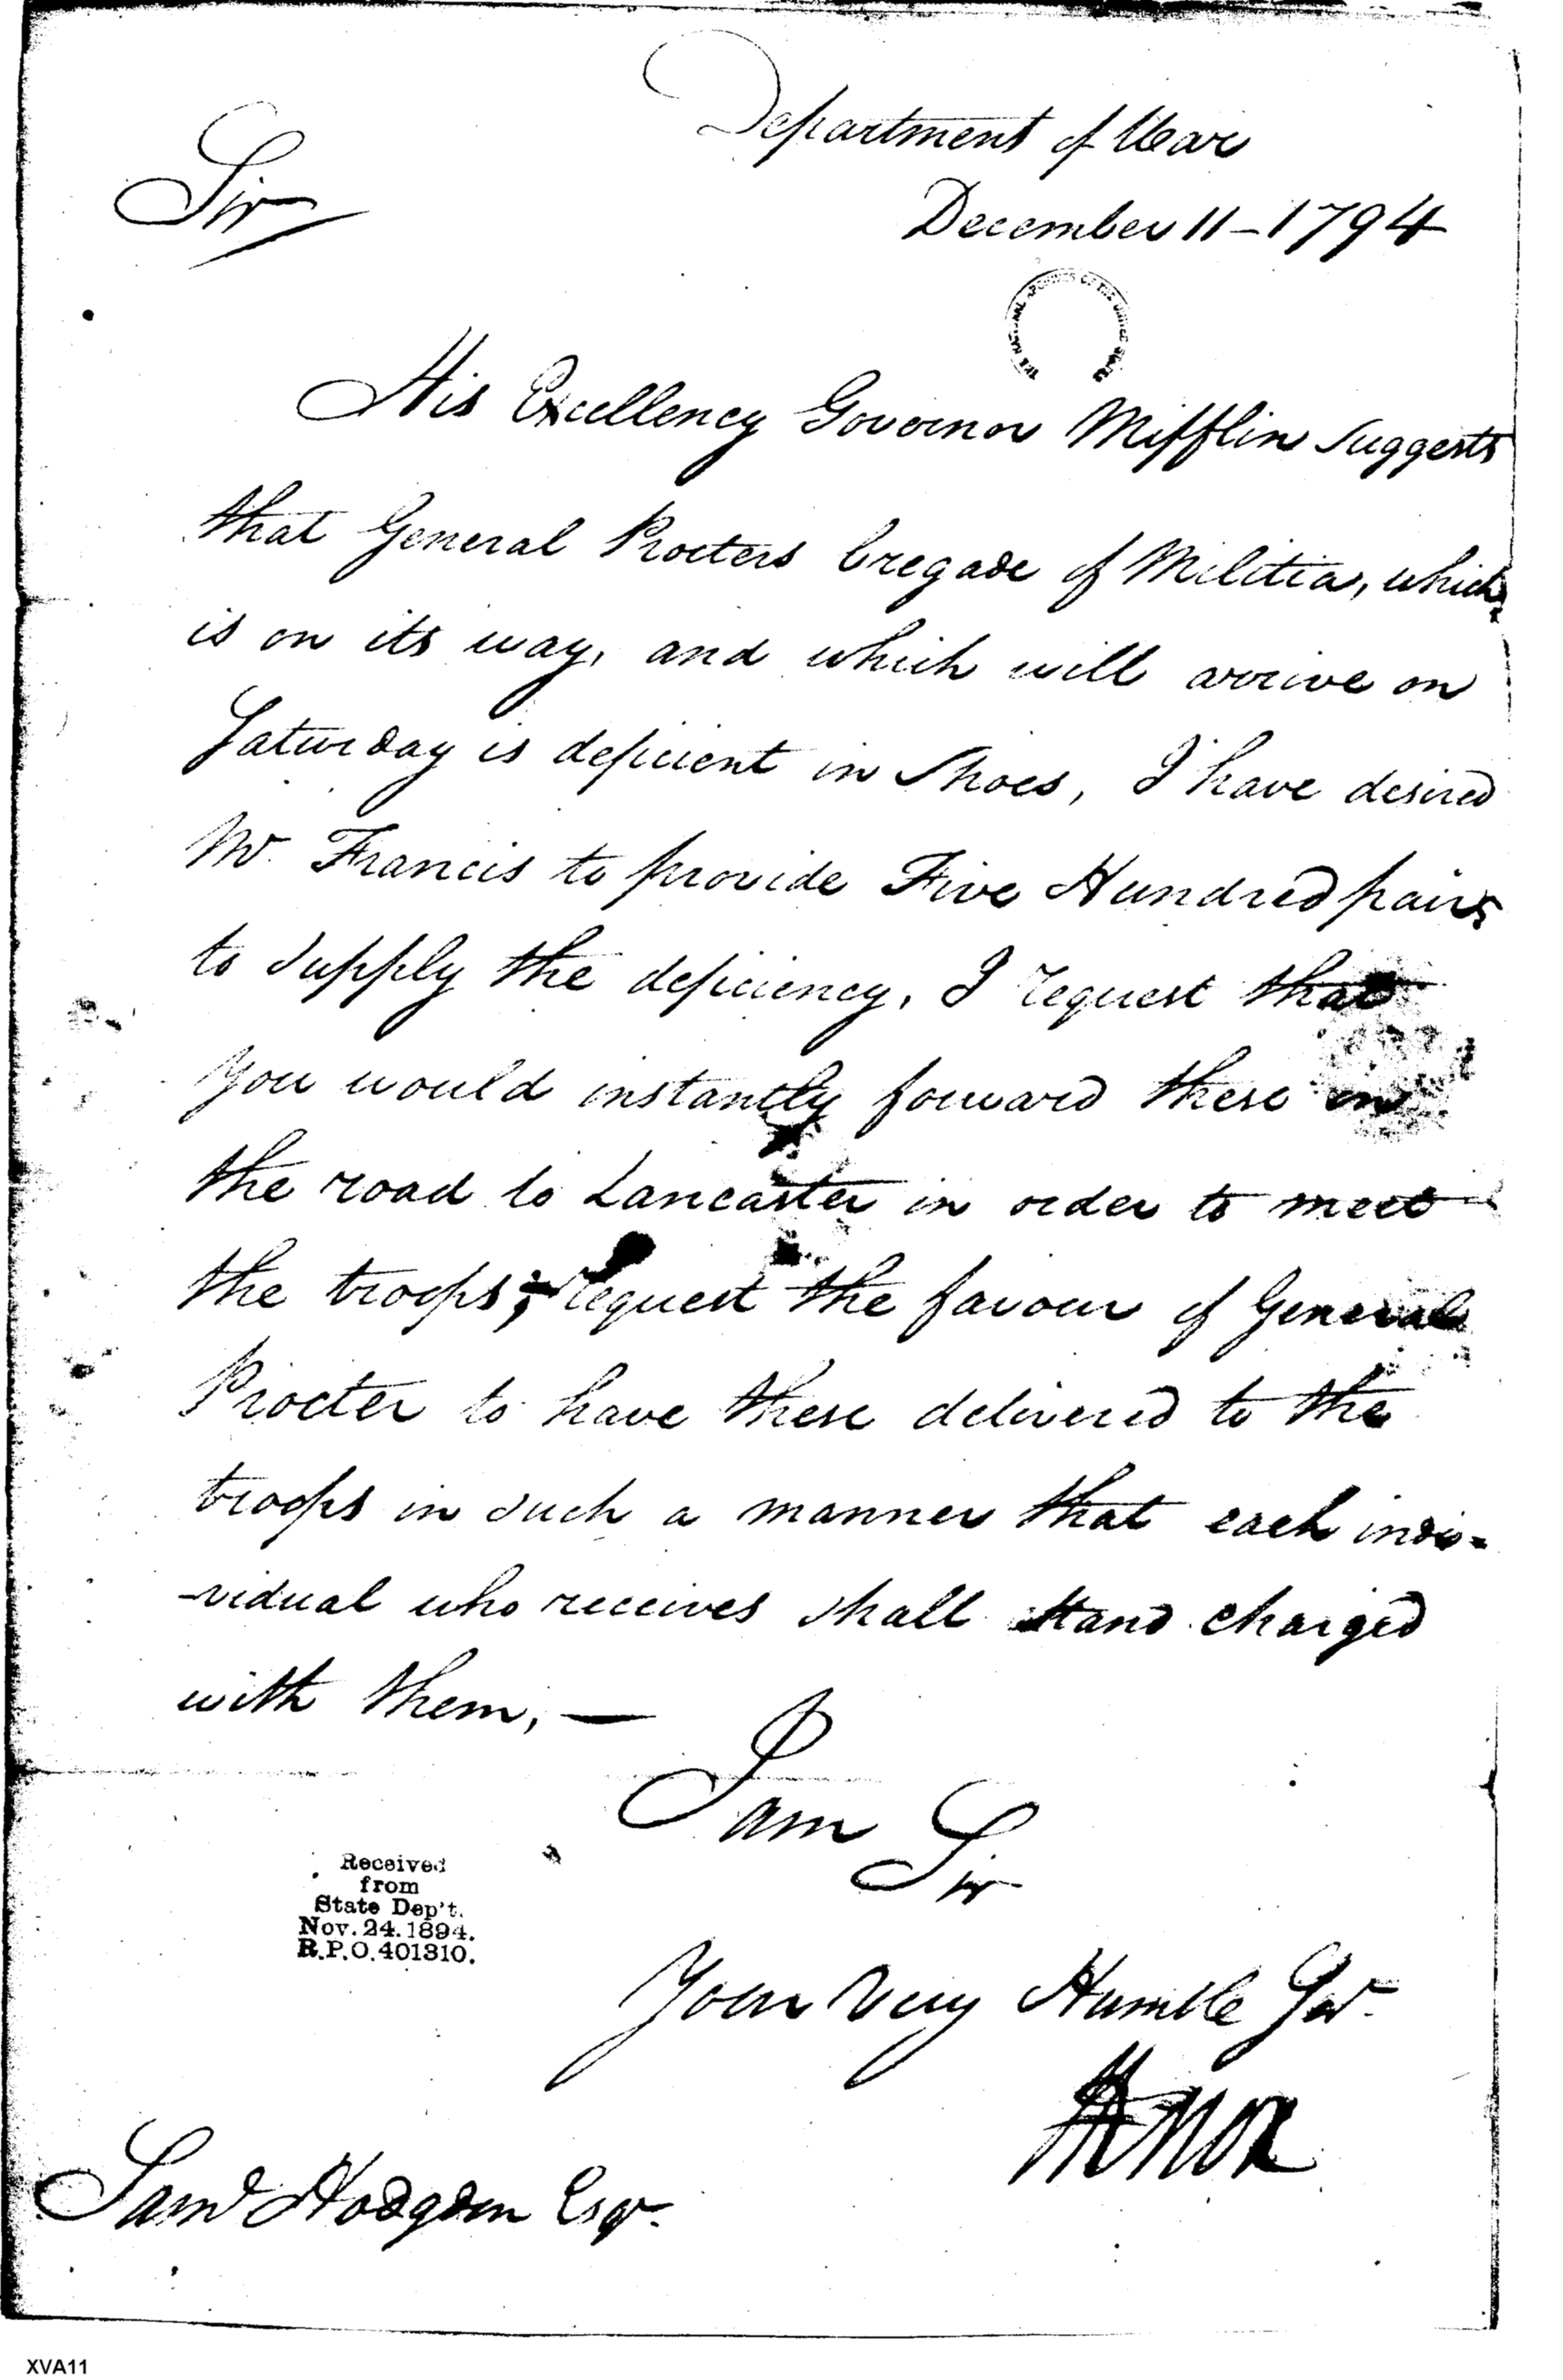 Department of War
Sir
December 11 - 1794
THE NATIONAL ARCHIVES OF THE UNITED STATES
His Excellency Governor Mifflin suggests
that General Procters bregade of Militia, which
is on its way, and which will arrive on
Saturday is deficient in Shoes, I have desired
Mr. Francis to provide Five Hundred pairs
to supply the deficiency, I request that
you would instantly forward these on
the road to Lancaster in order to meet
the troops; request the favour of General
Procter to have these delivered to the
troops in such a manner that each indi-
-vidual who receives shall stand charged
with them, —
I am Sir
Your very Humble Ser.
HKnox
Received
from
State Dep't.
Nov. 24. 1894.
R.P.O. 401310.
Saml Hodgdon Esqr.
XVA11